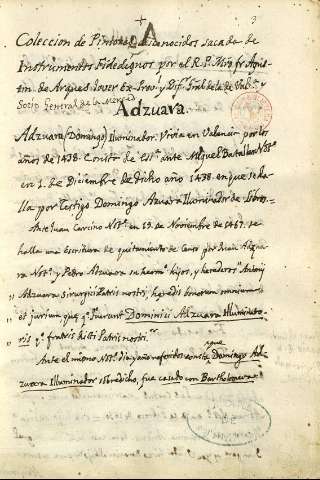 A
Coleccion de Pintores desconocidos sacada de
Instrumentos Fidedignos por el R. P. Mro fr. Agus
tin de Arques Jover Ex-Prov.l y Dif.r Gral de la de Val.a
Socio General de la Merced
Adzuara
Adzuara (Domingo) Iluminador. Vivia en Valencia por los
años de 1438. Consta de Ess.a ante Miguel Batalla Not.o
en 1. de Diciembre de dicho año 1438 en que se ha-
lla por Testigo Domingo Azuara Iluminador de libros.
Ante Juan Not.o en 19. de Noviembre de 1467. se
halla una Escritura de quitamiento de Censo por Juan Adzua-
ra Not.o y Pedro Adzuara su herm.o hijos, y herederos "Antonij
" Adzuara Sirurgici Patris nostri, heredis bonorum omnium
" et jurium que fuerunt Dominici Adzuara Illuminato-
" ris q.o fratris dicti Patris nostri."
Ante el mismo Not.o dia y año referidos consta, que Domingo Ad-
zuara Illuminador sobredicho, fue casado con Bartholomeva